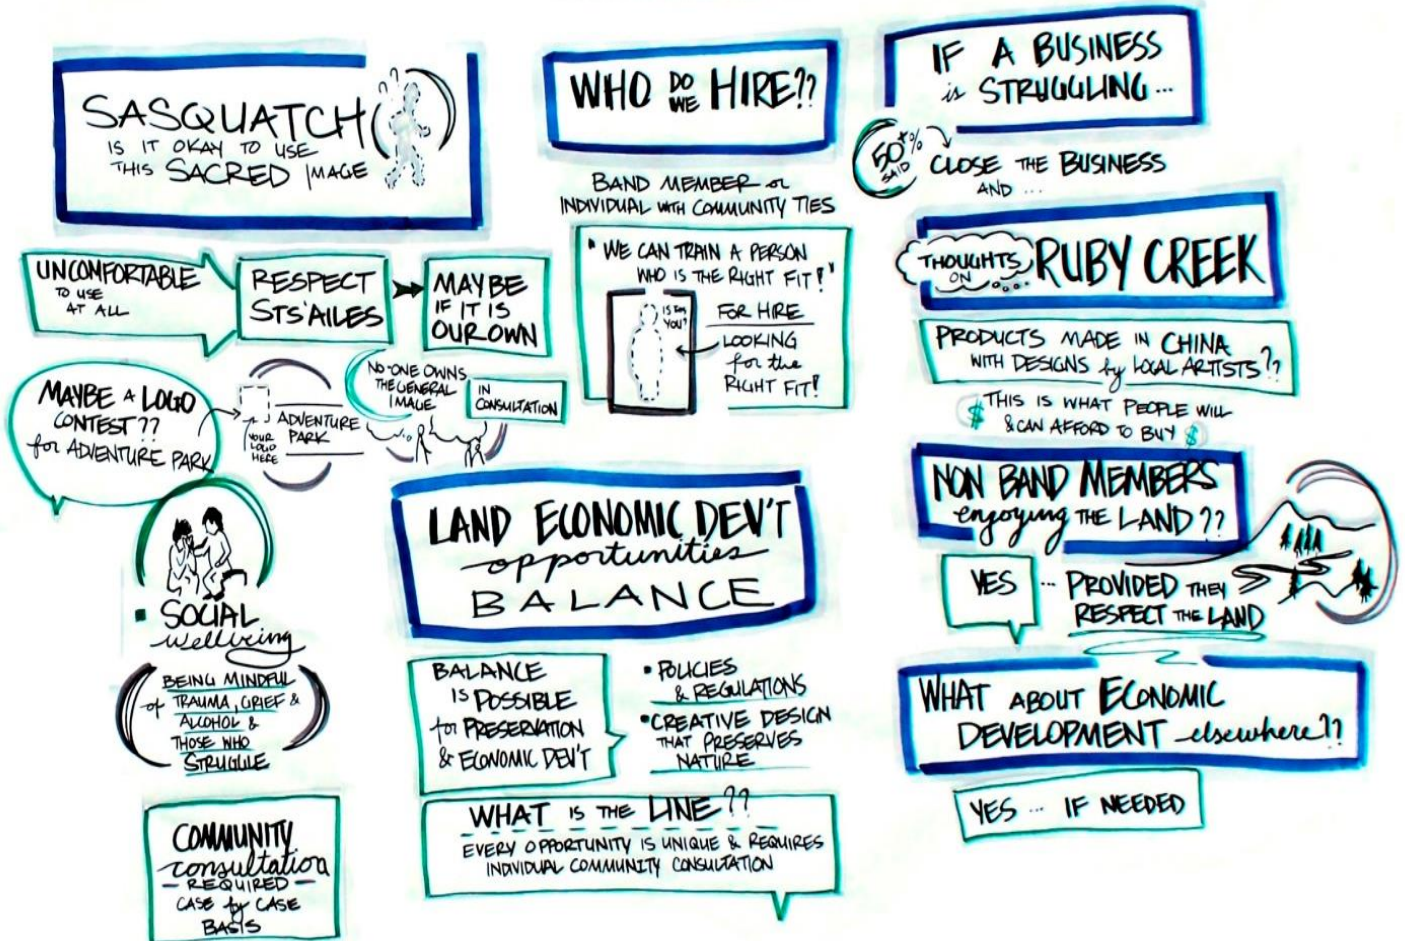 SASQUATCH
IS IT OKAY TO USE
THIS SACRED IMAGE
UNCOMFORTABLE
TO USE
AT ALL
RESPECT
STS'AILES
MAYBE
IF IT IS
OUR OWN
MAYBE A LOGO
CONTEST??
for ADVENTURE PARK
YOUR
LOGO
HERE
ADVENTURE
PARK
NO-ONE OWNS
THE GENERAL
IMAGE
IN
CONSULTATION
SOCIAL
wellbeing
BEING MINDFUL
of TRAUMA, GRIEF &
ALCOHOL &
THOSE WHO
STRUGGLE
COMMUNITY
consultation
- REQUIRED -
CASE by CASE
BASIS
WHO DO WE HIRE??
BAND MEMBER or
INDIVIDUAL WITH COMMUNITY TIES
"WE CAN TRAIN A PERSON
WHO IS THE RIGHT FIT!"
IS IT
YOU?
FOR HIRE
LOOKING
for the
RIGHT FIT!
LAND ECONOMIC DEV'T
opportunities
BALANCE
BALANCE
IS POSSIBLE
for PRESERVATION
& ECONOMIC DEV'T
• POLICIES
& REGULATIONS
• CREATIVE DESIGN
THAT PRESERVES
NATURE
WHAT IS THE LINE??
EVERY OPPORTUNITY IS UNIQUE & REQUIRES
INDIVIDUAL COMMUNITY CONSULTATION
IF A BUSINESS
is STRUGGLING...
50+%
SAID
CLOSE THE BUSINESS
AND ...
THOUGHTS
ON
RUBY CREEK
PRODUCTS MADE IN CHINA
WITH DESIGNS by LOCAL ARTISTS??
$ THIS IS WHAT PEOPLE WILL
& CAN AFFORD TO BUY $
NON BAND MEMBERS
enjoying THE LAND??
YES ... PROVIDED THEY
RESPECT THE LAND
WHAT ABOUT ECONOMIC
DEVELOPMENT elsewhere??
YES ... IF NEEDED